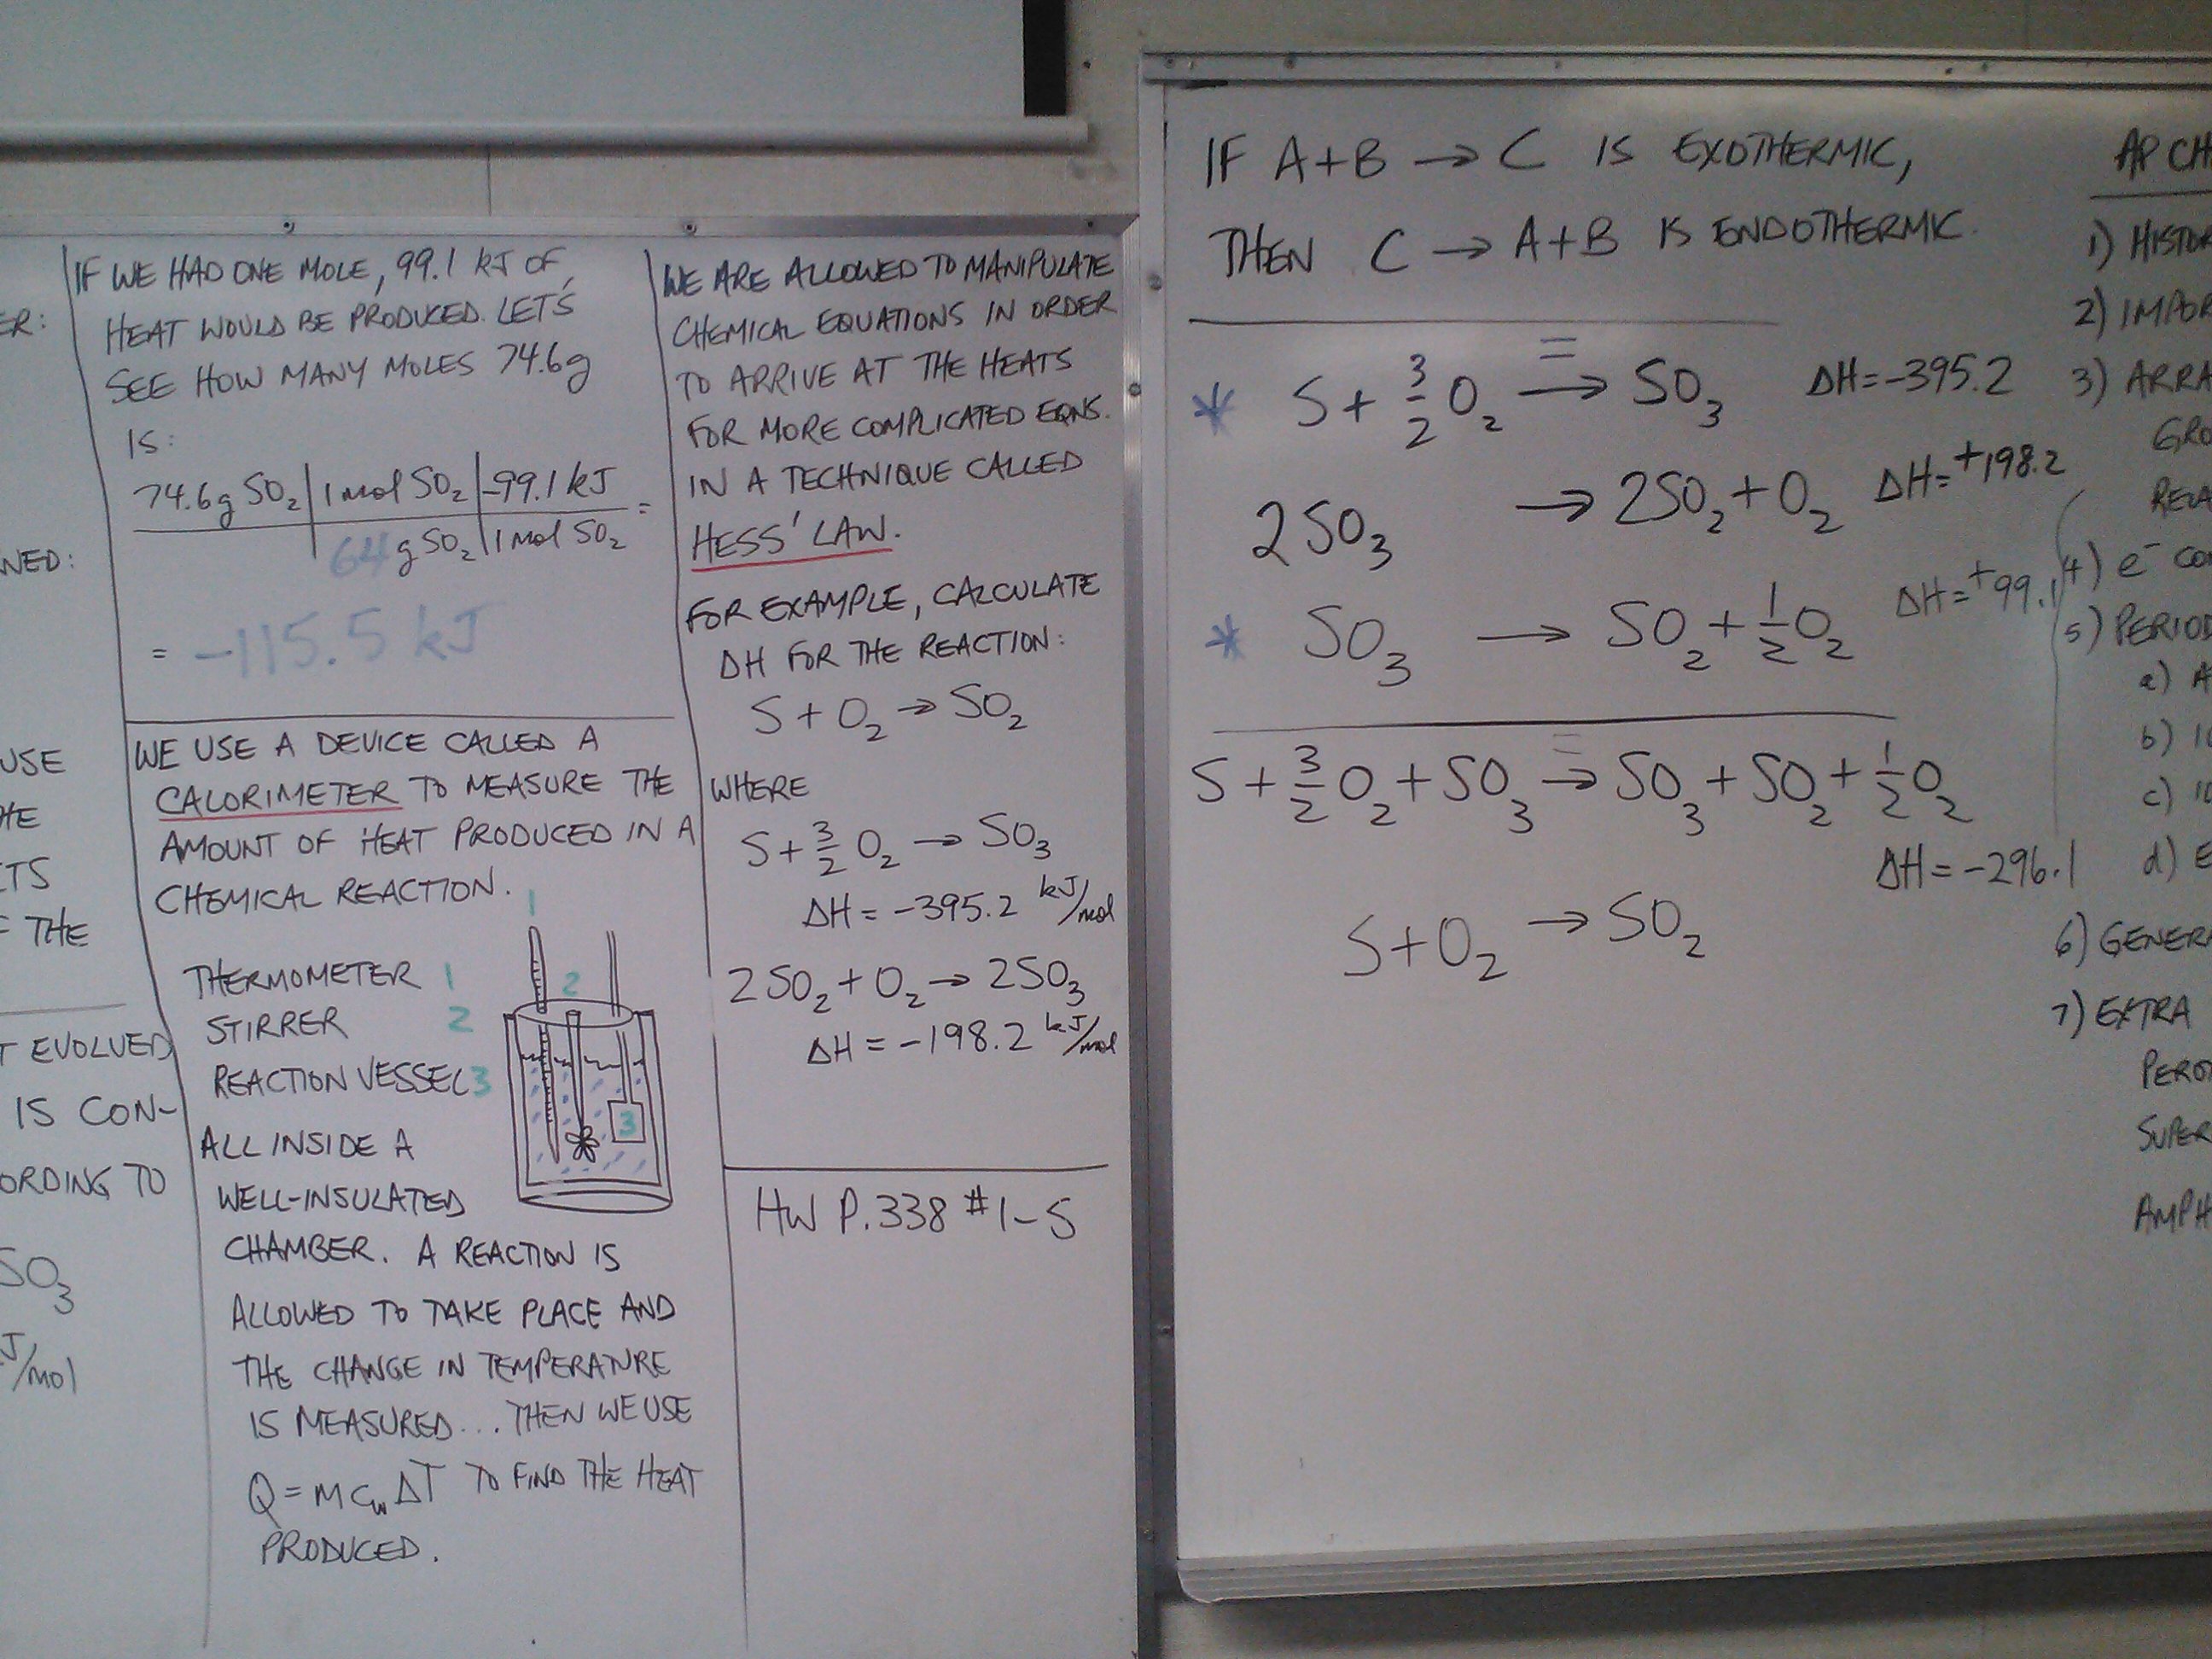 ER:
NED:
USE
HE
TS
F THE
T EVOLVED
IS CON-
ORDING TO
SO₃
J/mol
IF WE HAD ONE MOLE, 99.1 kJ OF
HEAT WOULD BE PRODUCED. LET'S
SEE HOW MANY MOLES 74.6g
IS:
74.6g SO₂ | 1 mol SO₂ | -99.1 kJ =
64 g SO₂ | 1 mol SO₂
= -115.5 kJ
WE USE A DEVICE CALLED A
CALORIMETER TO MEASURE THE
AMOUNT OF HEAT PRODUCED IN A
CHEMICAL REACTION.
1
THERMOMETER 1
2
STIRRER 2
REACTION VESSEL 3
3
ALL INSIDE A
WELL-INSULATED
CHAMBER. A REACTION IS
ALLOWED TO TAKE PLACE AND
THE CHANGE IN TEMPERATURE
IS MEASURED... THEN WE USE
Q = m c_w ΔT TO FIND THE HEAT
PRODUCED.
WE ARE ALLOWED TO MANIPULATE
CHEMICAL EQUATIONS IN ORDER
TO ARRIVE AT THE HEATS
FOR MORE COMPLICATED EQNS.
IN A TECHNIQUE CALLED
HESS' LAW.
FOR EXAMPLE, CALCULATE
ΔH FOR THE REACTION:
S + O₂ → SO₂
WHERE
S + 3/2 O₂ → SO₃
ΔH = -395.2 kJ/mol
2SO₂ + O₂ → 2SO₃
ΔH = -198.2 kJ/mol
HW P.338 #1-5
IF A+B → C IS EXOTHERMIC,
THEN C → A+B IS ENDOTHERMIC.
=
* S + 3/2 O₂ → SO₃ ΔH = -395.2
2SO₃ → 2SO₂ + O₂ ΔH = +198.2
* SO₃ → SO₂ + 1/2 O₂ ΔH = +99.1
=
S + 3/2 O₂ + SO₃ → SO₃ + SO₂ + 1/2 O₂
ΔH = -296.1
S + O₂ → SO₂
AP CH
1) HISTOR
2) IMPOR
3) ARRA
GRO
RELA
4) e⁻ CO
5) PERIOD
a) A
b) IO
c) IO
d) E
6) GENERA
7) EXTRA
PERO
SUPER
AMPH